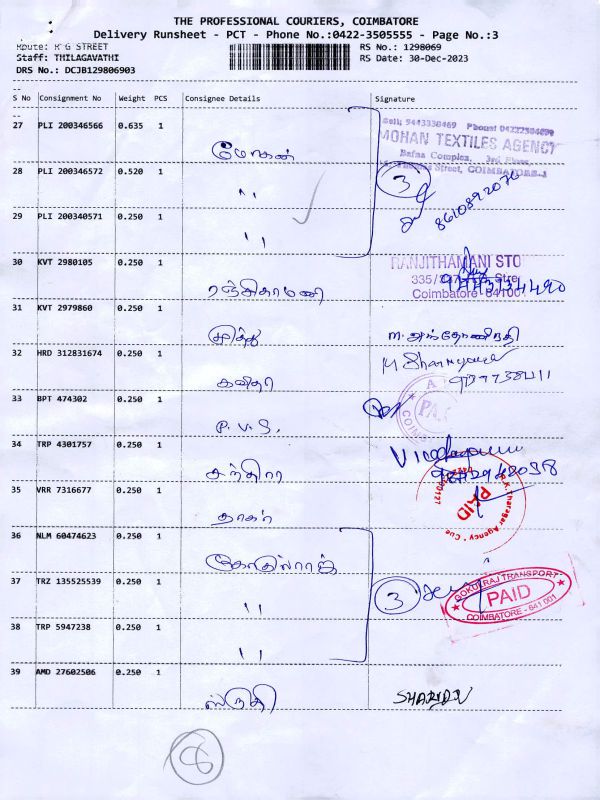 THE PROFESSIONAL COURIERS, COIMBATORE
Delivery Runsheet - PCT - Phone No.:0422-3505555 - Page No.:3
Route: R G STREET
RS No.: 1298069
Staff: THILAGAVATHI
RS Date: 30-Dec-2023
DRS No.: DCJB129806903
S No Consignment No Weight PCS Consignee Details Signature
27 PLI 200346566 0.635 1 மோகன்
Cell: 9443338469 Phone: 04222504699
MOHAN TEXTILES AGENCY
Bafna Complex, 3rd Floor,
Street, COIMBATORE-1
28 PLI 200346572 0.520 1 " 3
29 PLI 200340571 0.250 1 "
30 KVT 2980105 0.250 1 ரஞ்சிதாமணி
RANJITHAMANI STO
Coimbatore 641001
31 KVT 2979860 0.250 1 முத்து
32 HRD 312831674 0.250 1 கவிதா
33 BPT 474302 0.250 1 P.V.S.
34 TRP 4301757 1 சந்திரா
35 VRR 7316677 0.250 1 தாகூர்
PAID
36 NLM 60474623 0.250 1
37 TRZ 135525539 0.250 1 " 3
GOKULRAJ TRANSPORT
PAID
COIMBATORE - 641 001
38 TRP 5947238 0.250 1 "
39 AMD 27602506 0.250 1 ஸ்ருதி
8